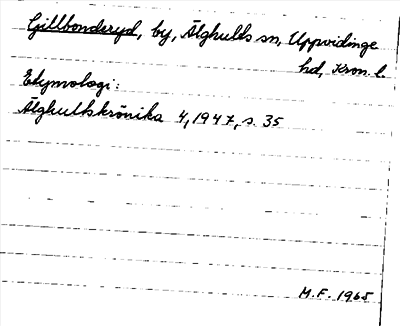 Gillbonderyd, by, Älghults sn, Uppvidinge
hd, Kron. l.
Etymologi:
Älghultskrönika 4, 1947, s. 35
M.F. 1965